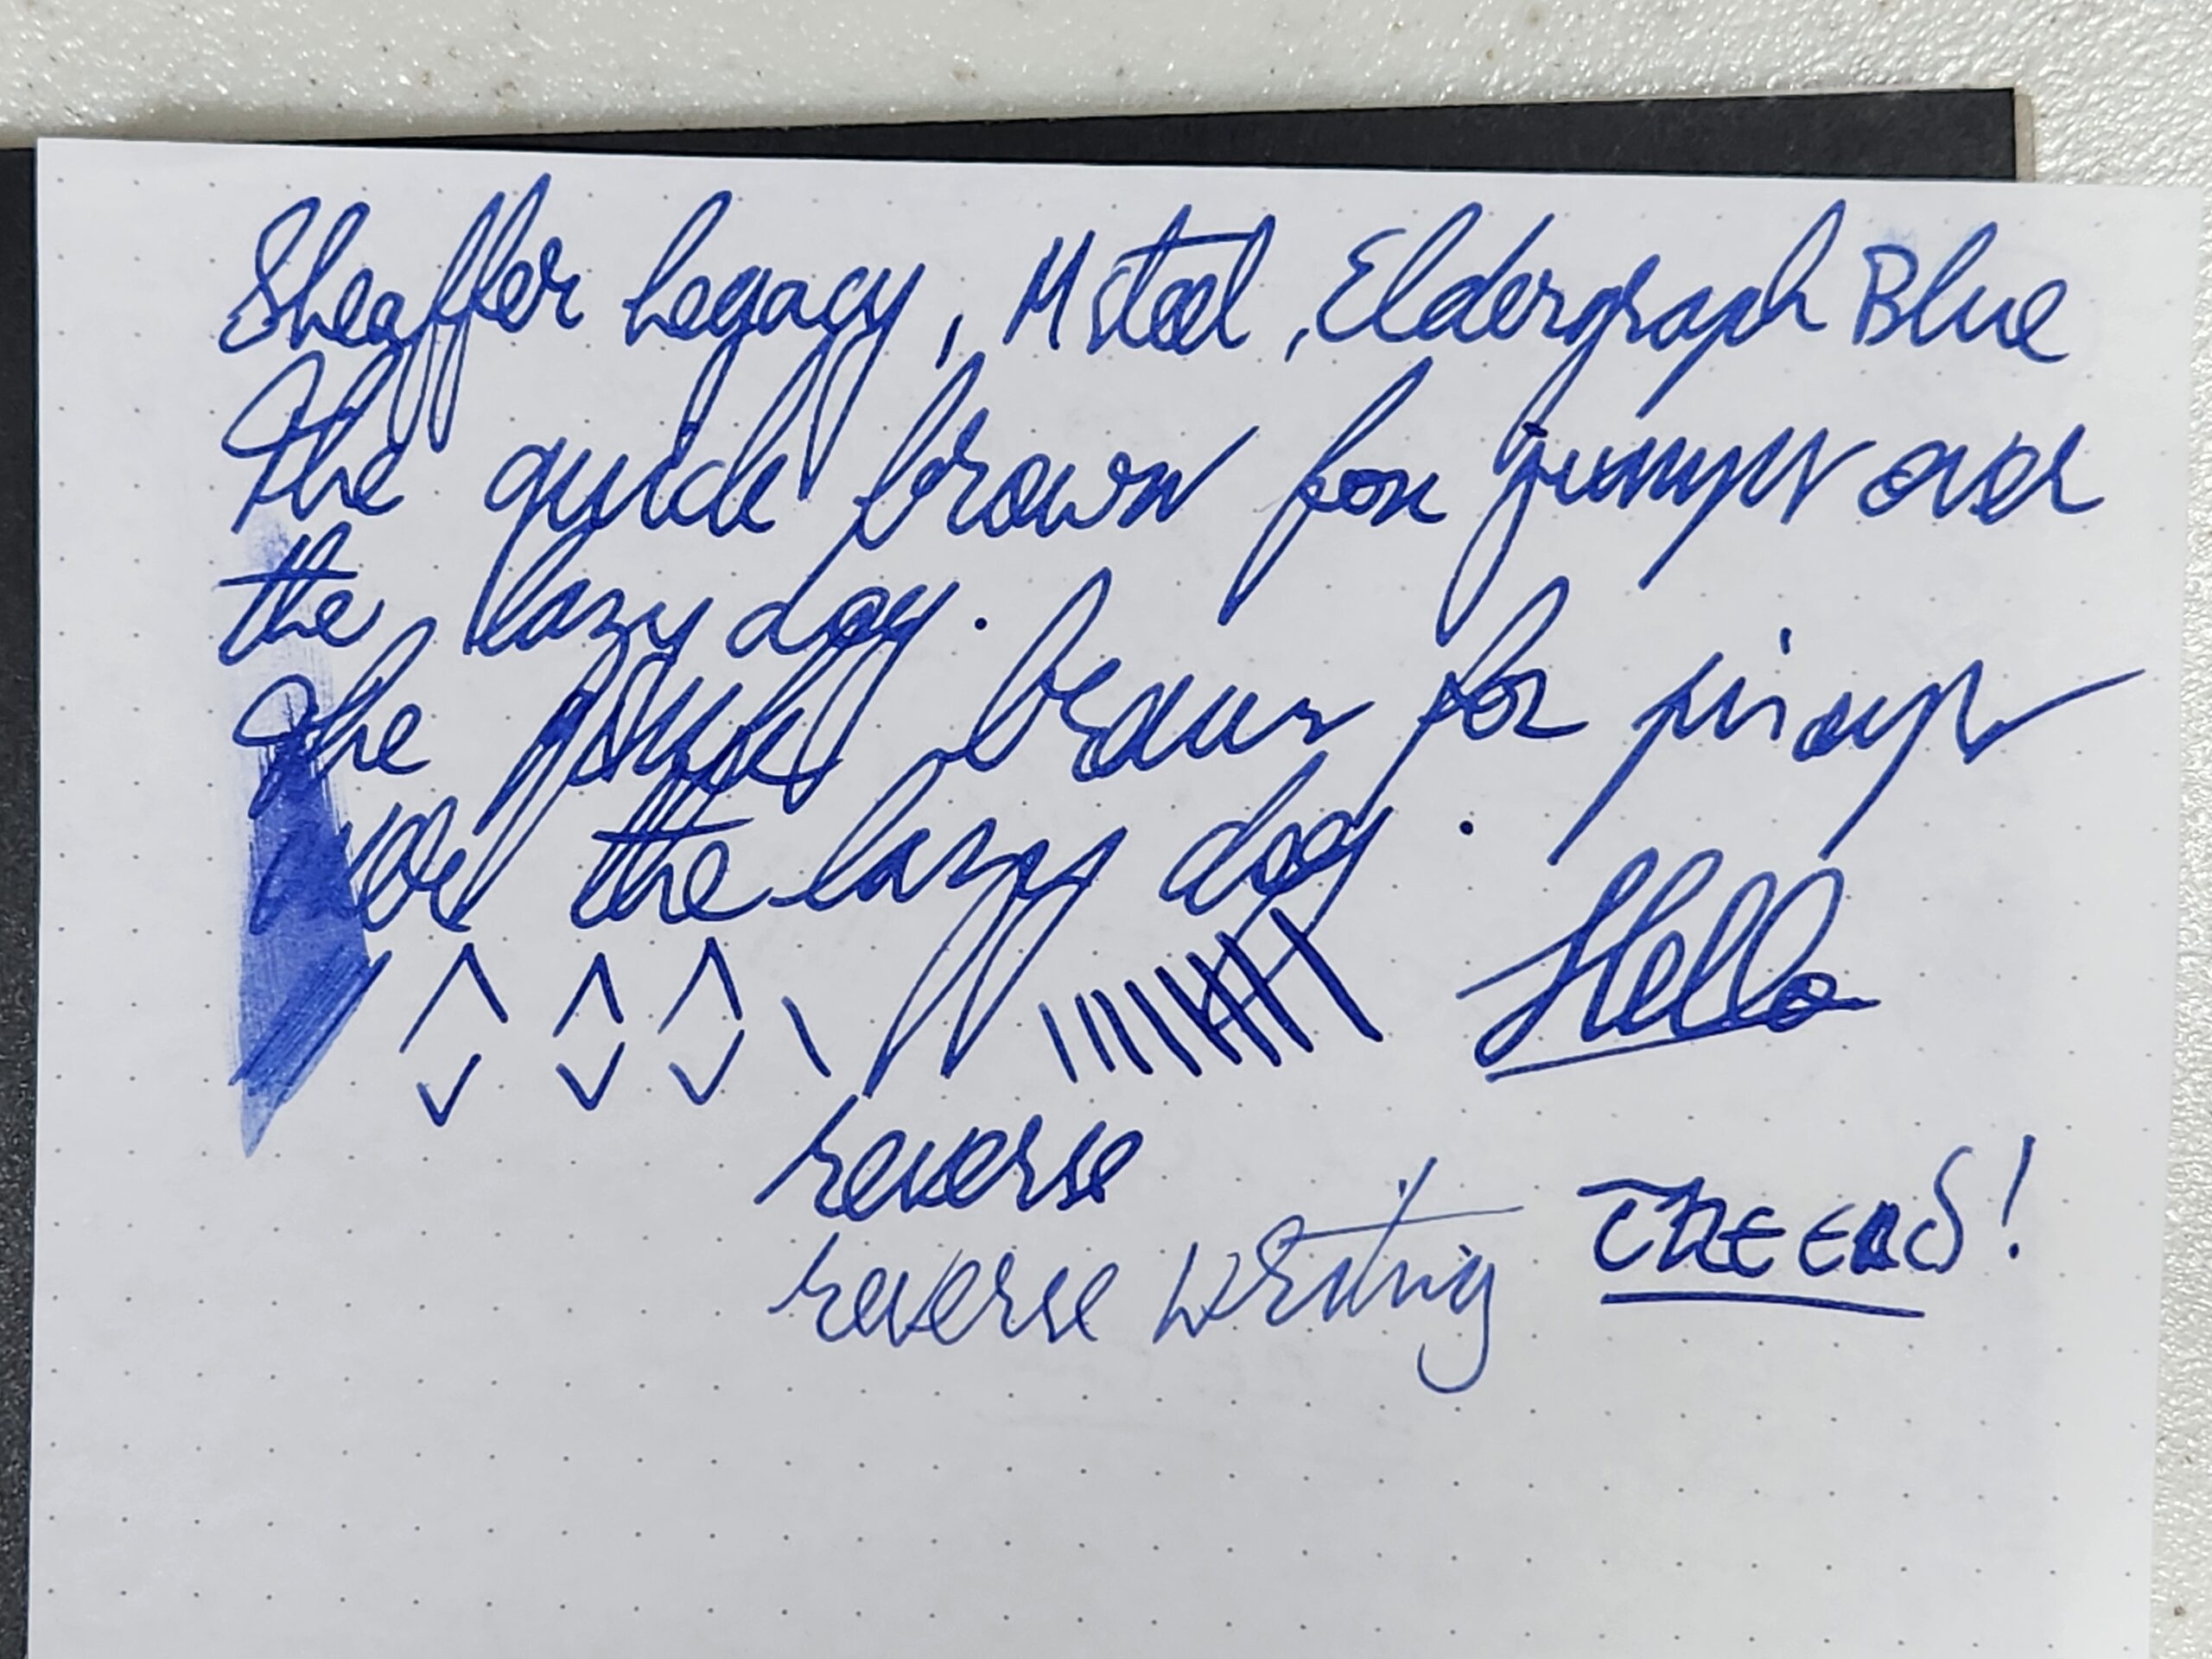 Sheaffer Legacy, M steel, Eldergraph Blue
The quick brown fox jumps over
the lazy dog.
The quick brown fox jumps
over the lazy dog.
Hello
reverse
reverse writing
THE END!